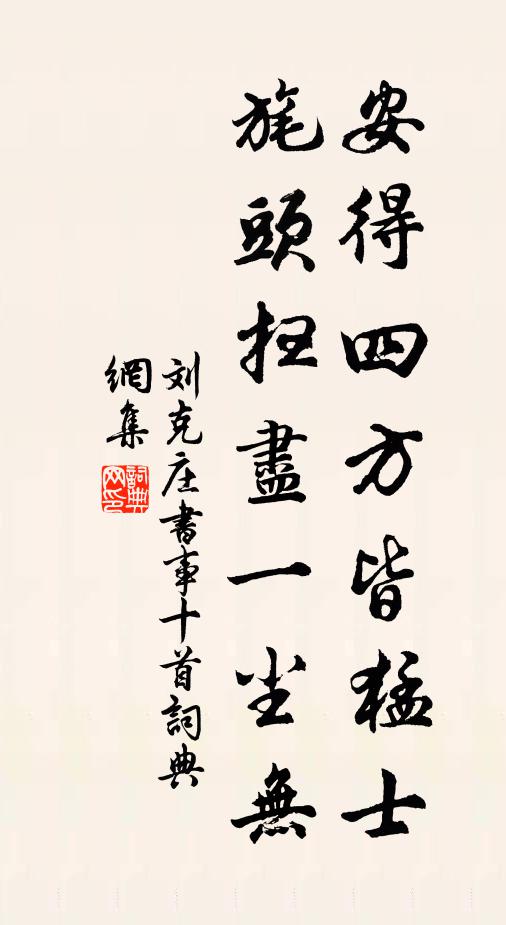 安得四方皆猛士
旄頭扫盡一尘無
刘克庄書事十首詞典
網集
詞典網印